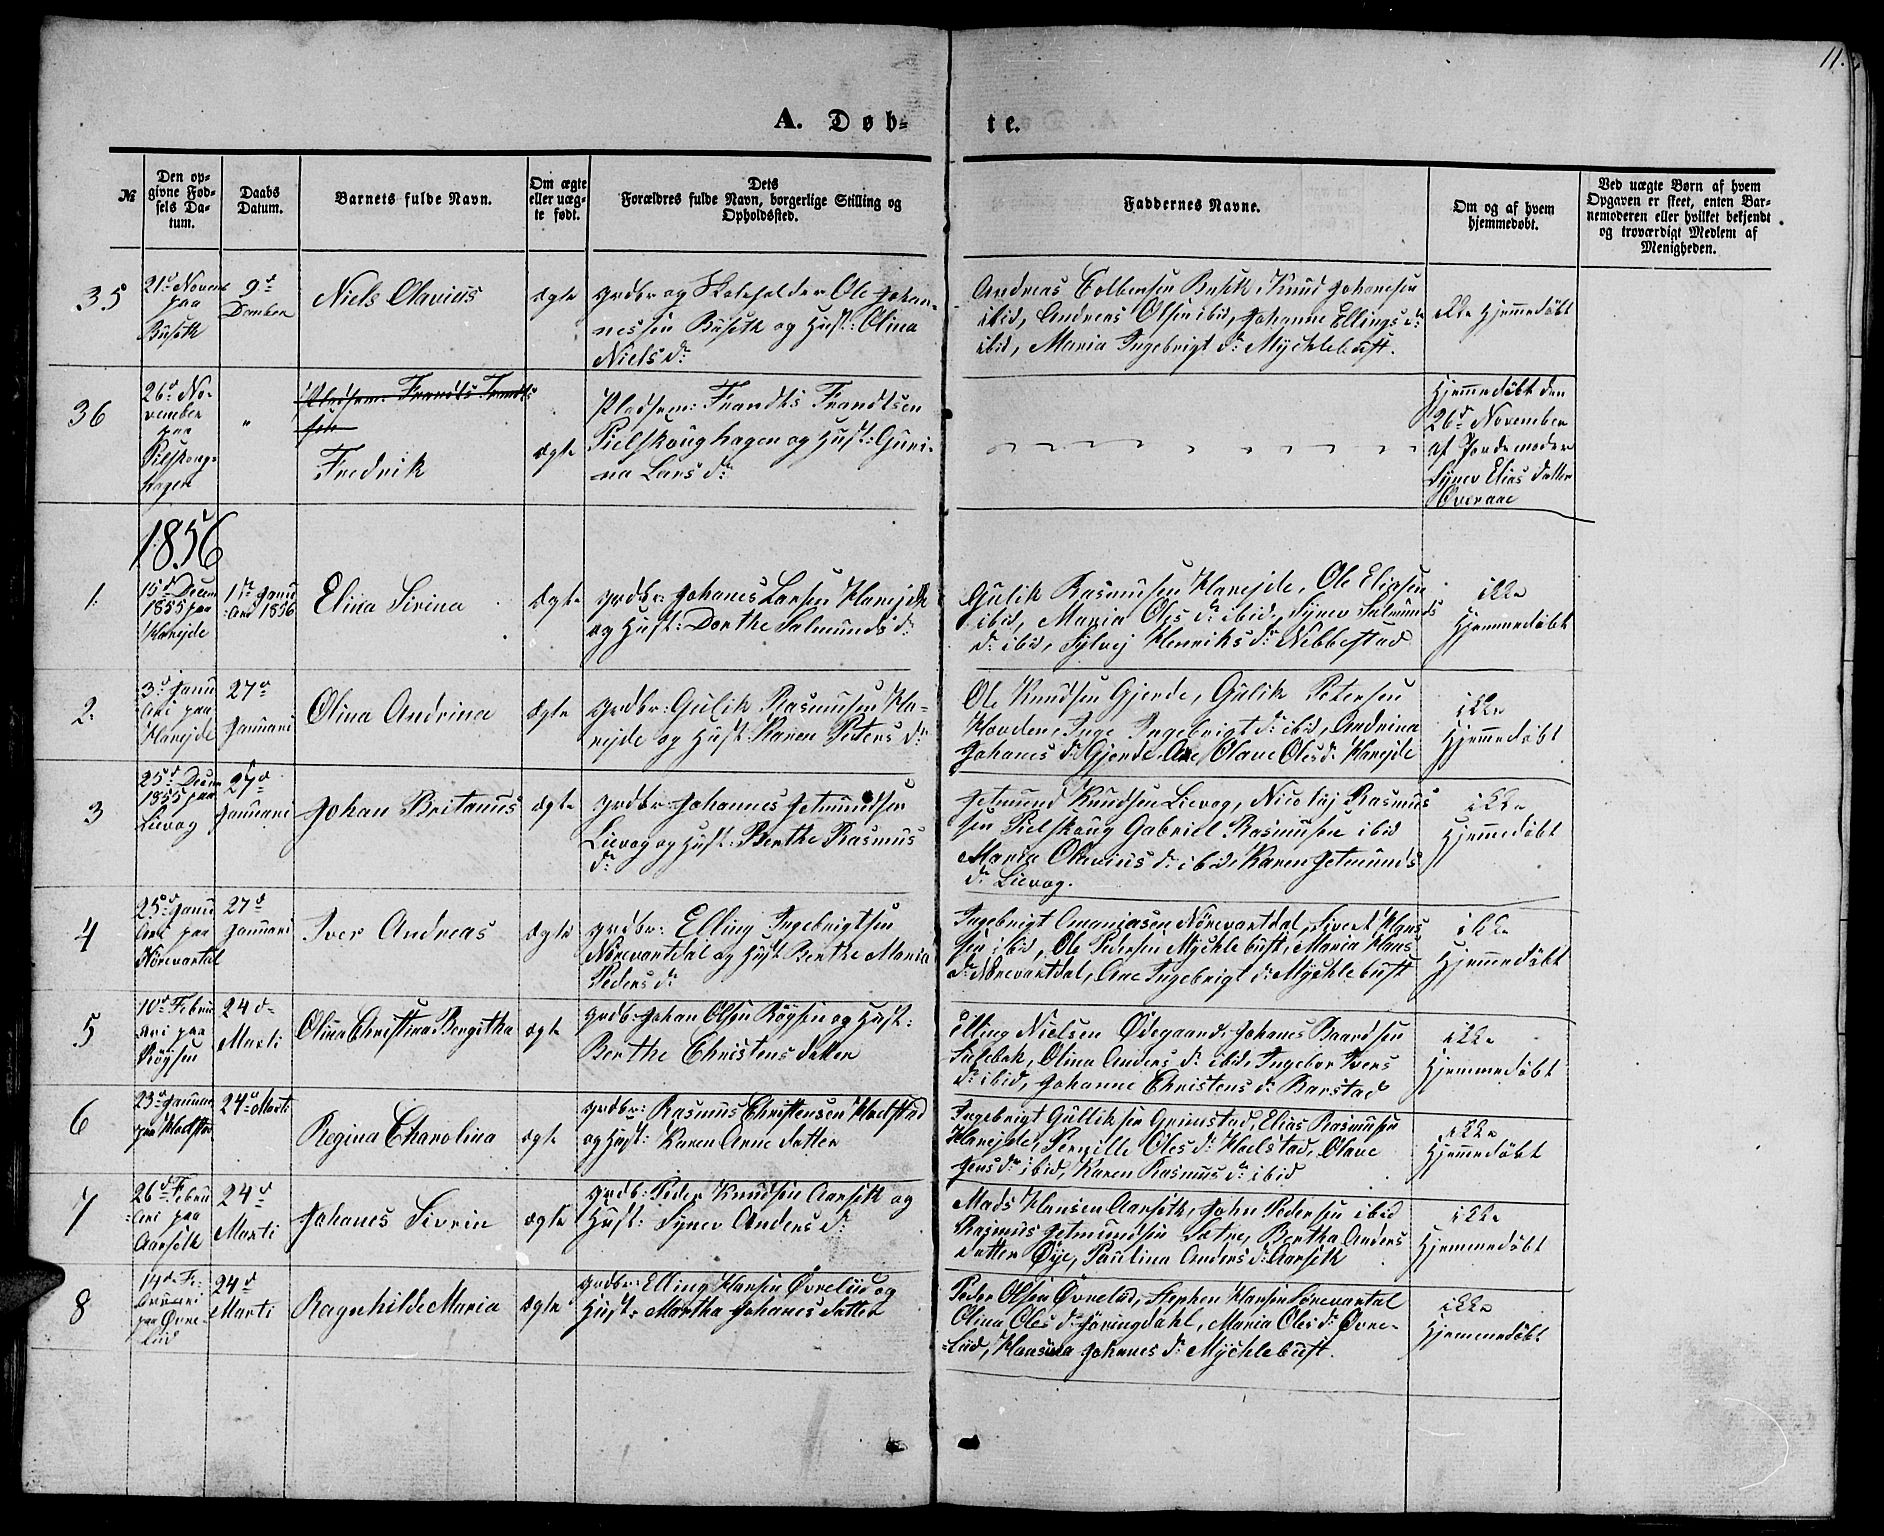 11.
A. Døb-
te.
№
Den op-
givne Fød-
sels Da-
tum.
Daabs
Datum.
Barnets fulde Navn.
Om ægte
eller uæg-
te født.
Dets
Forældres fulde Navn, borgerlige Stilling og
Opholdssted.
Faddernes Navne.
Om og af hvem
hjemmedøbt.
Ved uægte Børn af hvem
Opgaven er skeet, enten Bar-
nemoderen eller hvilket bekjendt
og troværdigt Medlem af
Menigheden.
35
21d Novem
paa
Buseth
9d
Dember
Niels Olavius
ægte
grdbr og Skoleholder Ole Johan-
nessen Buseth og Hust: Olina
Niels dr
Andreas Colbensen Buseth, Knud Johansen
ibid, Andreas Olsen ibid, Johanne Ellings dr
ibid, Maria Ingebrigt dr Myhlebust.
ikke Hjemmedøbt
36
26d No-
vember
paa
Pielskoug-
hagen
"
Pladsem: Frandts Frandts
sen
Fredrik
ægte
Pladsem: Frandts Frandtsen
Pielskoughagen og Hust: Guri-
na Lars dr
Hjemmedøbt den
26d November
af Jordemoder
Synev Elias datter
Overaae
1856
1.
15d Decem
1855 paa
Hareide
1ste Janu
ari 1856
Elina Sivina
ægte
grdbr: Johanes Larsen Hareide
og Hust: Dorthe Salmunds dr
Gulik Rasmusen Hareide, Ole Eliasen
ibid, Maria Oles dr ibid, Synev Salmunds
dr ibid, Sylvej Henriks dr Nebbestad
ikke
Hjemmedøbt
2.
3d Janu
ari paa
Hareide
27d
Januari
Olina Andrina
ægte
grdbr: Gulik Rasmusen Ha-
reide og Hust Karen Peters dr
Ole Knudsen Gjerde, Gulik Petersen
Hovden, Inge Ingebrigt dr ibid, Andrina
Johanes dr Gjerde Ane Olave Oles dr Hareide
ikke
Hjemmedøbt
3
25d Decem
1855 paa
Lievog
27d
Januari
Johan Britanus
ægte
grdbr: Johannes Jetmundsen
Lievog og Hust: Berthe Rasmus
dr
Jetmund Knudsen Lievog, Nicolaj Rasmus
sen Pielskoug Gabriel Rasmusen ibid
Maria Olavius dr ibid, Karen Jetmunds
dr Lievog.
ikke
Hjemmedøbt
4
25d Janu
ari paa
Nörevartal
27d
Januari
Iver Andreas
ægte
grdbr: Elling Ingebrigtsen
Nörevartdal og Hust Berthe Maria
Peders dr
Ingebrigt Ananiasen Nörevartdal, Sivert Hans
sen ibid, Ole Pedersen Myhlebust, Maria Hans
dr Nörevartdal, Ane Ingebrigt dr Myhlebust
ikke
Hjemmedøbt
5
10d Febru
ari paa
Röysen
24d
Marti
Olina Christina Bergitha
ægte
grdb: Johan Olsen Röysen og Hust:
Berthe Christens datter
Elling Nielsen Ødegaard, Johanes Baardsen
Liesebak, Olina Anders dr ibid, Ingebor Ivers
dr ibid, Johanne Christens dr Barstad
ikke
Hjemmedøbt
6
23d Januar
paa Hadsta
24d Marti
Regina Charolina
ægte
grdbr: Rasmus Christensen Hadstad
og Hust: Karen Arne datter
Ingebrigt Gulliksen Grimstad, Elias Rasmusen
Hareide, Pernille Oles dr Hadstad, Olave
Jens dr ibid, Karen Rasmus dr ibid
ikke
Hjemmedøbt
7
26d Febru
ari paa
Aarseth
24d
Marti
Johanes Sivrin
ægte
grdb: Peder Knudsen Aarseth og
Hust: Synev Anders dr
Mads Hansen Aarseth, John Pedersen ibid
Rasmus Jetmundsen Sætre, Bertha Anders
datter Øye, Paulina Anders dr Aarseth
ikke
Hjemmedøbt
8
14d Fe-
bruari
paa Øvre-
liid
24d
Marti
Ragnhilde Maria
ægte
grdbr: Elling Hansen Øvreliid og
Hust: Martha Johanes datter
Peder Olsen Øvreliid, Stephen Hansen Sörevartal
Olina Oles dr Jöringdahl, Maria Oles dr Øvre-
liid, Hansina Johanes dr Myhlebust.
ikke
Hjemmedøbt